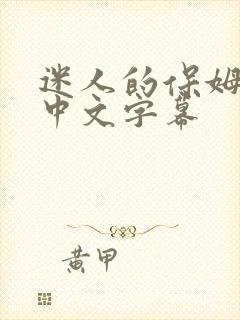 迷人的保姆
中文字幕
黄甲